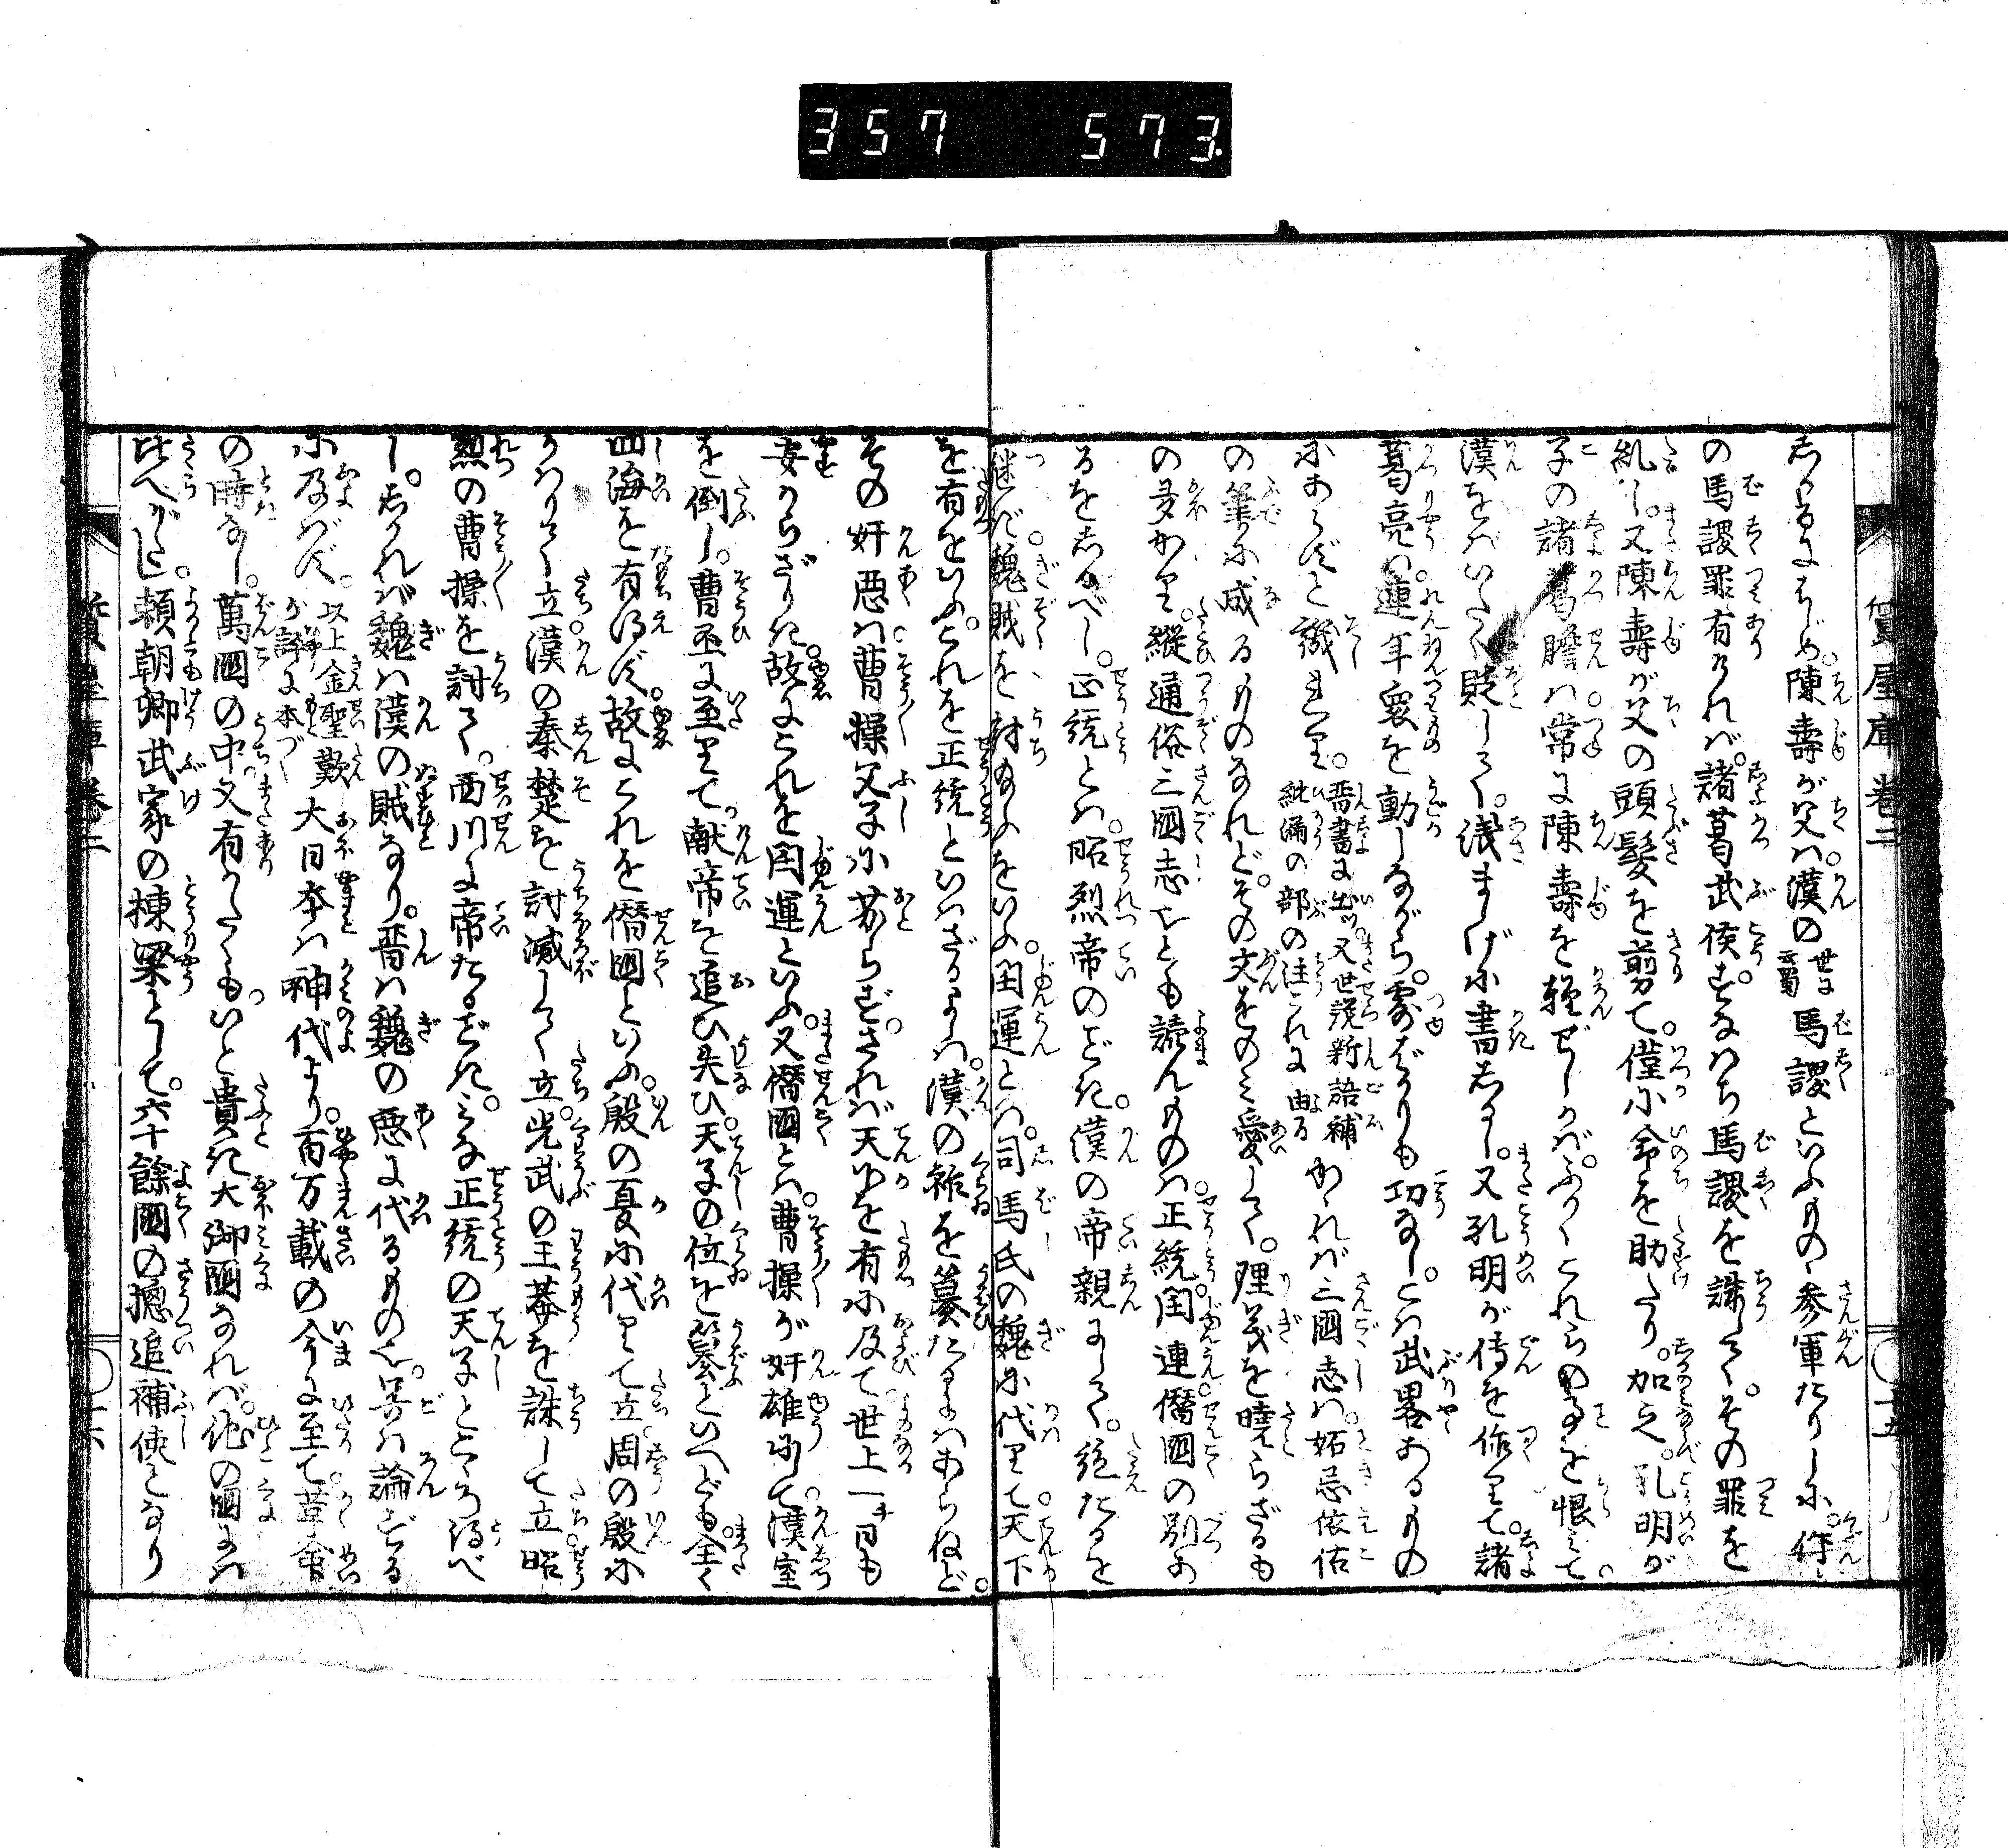 357 573.
質屋庫卷二
しかるにはじめ。陳壽が父は。漢の世に云蜀馬謖といふものゝ参軍たりしに。件
の馬謖罪有ければ。諸葛武侯。すなはち馬謖を誅して。その罪を
糺し。又陳壽が父の頭髮を剪て。僅に命を助たり。加之。孔明が
子の諸葛瞻は。常に陳壽を輕ぜしかば。ふかくこれらの事を恨みて。
漢をばいたく貶して。浅ましげに書なし。又孔明が傳を作りて。諸
葛亮は。連年衆を動しながら。露ばかりも功なし。こは武畧あるもの
にあらずと譏れり。晋書に出ヅ。又世説新語補紕漏の部の注これに由るかゝれば三國志は。妬忌依估
の筆に成るものなれど。その文をのみ愛して。理義を曉らざるも
の多かり。縱通俗三國志をとも読んものは。正統。閏運。僭國の別あ
るをしるべし。正統とは。昭烈帝のごとき。漢の帝親にして。絶たるを
継ぎ。魏賊を討給ふをいふ。閏運とは。司馬氏の魏に代りて天下
を有をいふ。これを正統といはざるよしは。漢の祚を簒たるにはあらねど。
その奸悪は。曹操父子に劣らず。されば天下を有に及て。世上一日も
安からざりき。故にこれを閏運といふ。又僭國とは。曹操が奸雄にして。漢室
を倒し。曹丕に至りて。献帝を追ひ失ひ。天子の位を簒といへども。全く
四海を有得ず。故にこれを僭國といふ。殷の夏に代りて立。周の殷に
かはりて立。漢の秦楚を討滅して立。光武の王莽を誅して立。昭
烈の曹操を討て。西川に帝たるごとき。みな正統の天子とこゝろ得べ
し。しかれば魏は漢の賊なり。晋は魏の悪に代るもの也。呉は論ずる
に及ばず。以上金聖歎が評に本づく大日本は神代より。百万載の今に至て革命
の時なし。萬國の中。又有がたくも。いと貴き大御國なれば。他の國には
比べがたし。頼朝卿武家の棟梁として。六十餘國の摠追補使となり